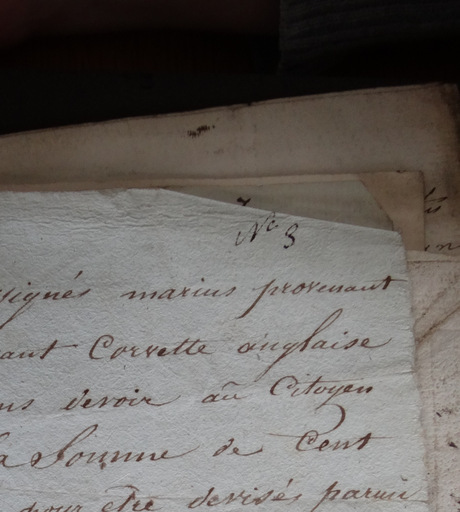 N° 3
signés marins provenant
ant Corvette anglaise
ns devoir au Citoyen
la Somme de Cent
pour être devisés parmi